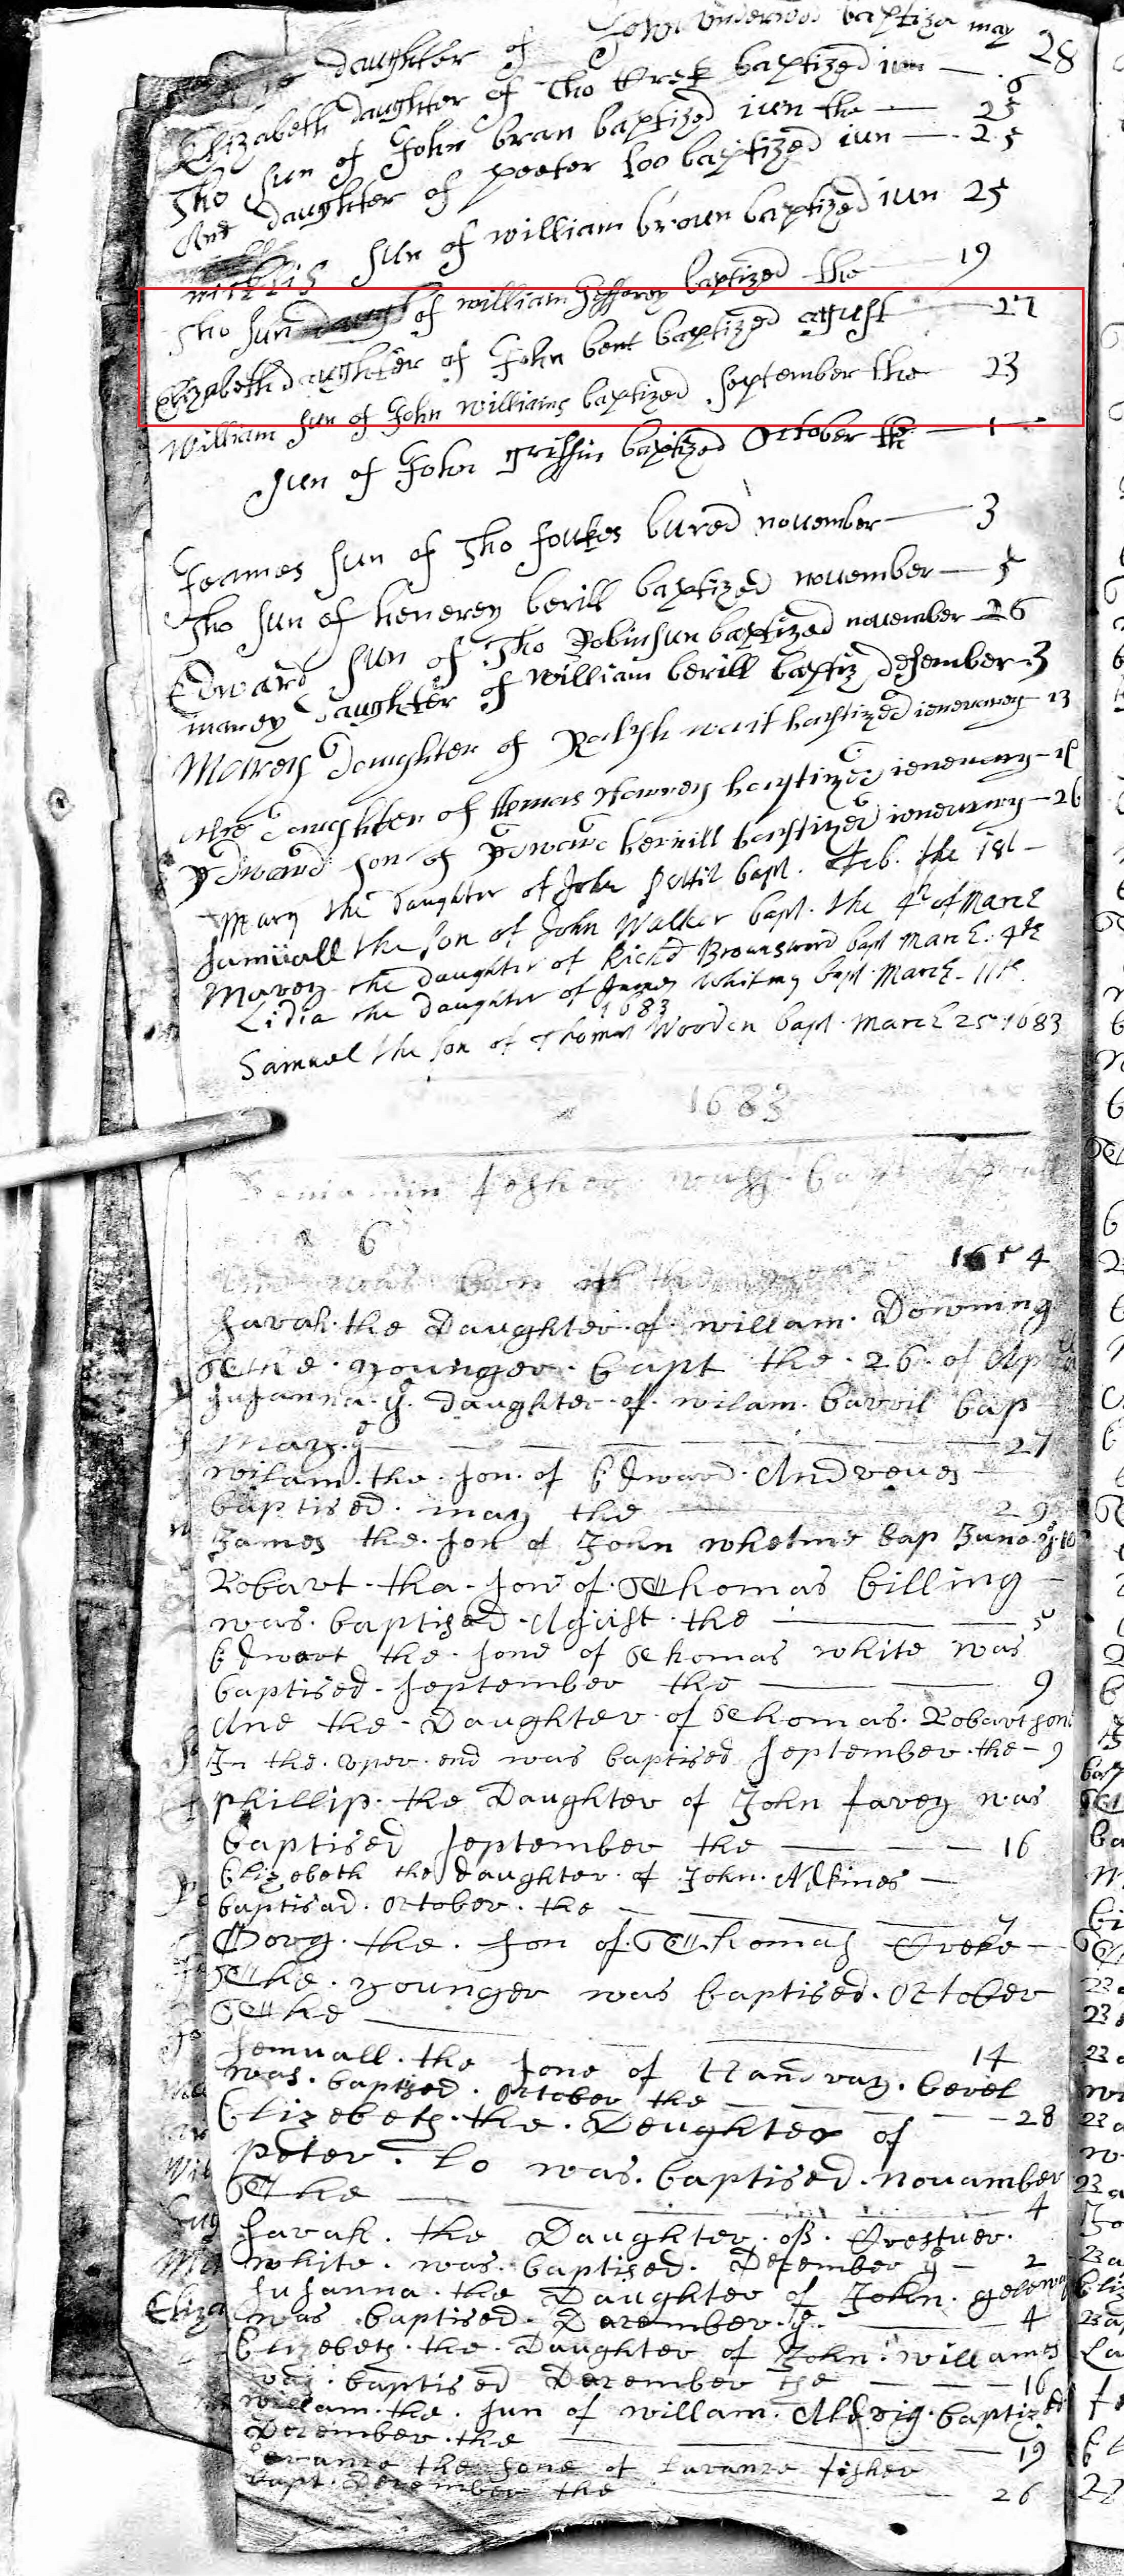 daughter of John Underwod baptiz may 28
Elizabeth daughter of Tho Creek baptized iun — 6
Tho sun of John bran baptized iun the — 25
And daughter of peeter loo baptized iun — 25
sun of william brown baptized iun 25
Tho sun of william Gefferey baptized the — 19
Elizabeth daughter of John bent baptized agust — 27
William sun of John williams baptized September the 23
sun of John griffin baptized October the — 1
Jeames sun of Tho foukes bured november — 3
Tho sun of henerey berill baptized november — 5
Edward sun of Tho Robinsun baptized november — 26
marey daughter of william berill baptiz desember 3
Marey daughter of Ralph wait baptized ieneuarey — 13
Ane daughter of tomas Hawrey baptized ieneuarey — 15
Edward son of Edward berrill baptized ieneuarey — 26
Mary the daughter of John Pettit bapt. Feb. the 18t —
Samuall the son of John Walker bapt. the 4th of March
Marey the daughter of Richd Brownsword bapt March. 4th
Lidia the daughter of James Whitmy bapt March. 11th
1683
Samuel the son of Thomas Wooden bapt. March 25 1683
1683
Beniamin fosher wass
6
1654
Sarah. the Daughter. of. willam. Downing
The. younger. bapt the. 26. of Ap
Susanna. ye. daughter. of. wilam. barvil bap
May. ye — 27
wilam. the. son. of Edward. Andreues
baptised. may the — 29
James the. son of John whetme bap June. ye. 10
Robart. tha. son of. Thomas billing
was. baptised. Agust. the — 5
Edwart the. sone of Thomas white was
baptised. september the — 9
Ane the. Daughter. of Thomas. Robartsone
In the. vper. end was baptised September. the — 9
phillip. the Daughter of John farey was
baptised September the — 16
Elizebeth the daughter. of John. Atkines —
baptisad. October. the — 7
Gorg. the. son of. Thomas Creke —
The. younger was baptised. October
The — 14
Semuall. the sone of Handray. bevel
was. baptised. October the — 28
Elizebeth. the. Deughter of
Peter. Lo was. baptised. nouamber
The — 4
Sarah. the Daughter. of. Crestuer.
white. was. baptised. December ye — 2
Susanna. the Daughter of John.
was baptised. December. ye. — 4
Elizebeth. the. Daughter of John. willames
was. baptised December the — 16
willam. the. sun of willam. Aldrig. baptized
December. the — 19
the sone of Laranre fisher
bapt. December the — 26